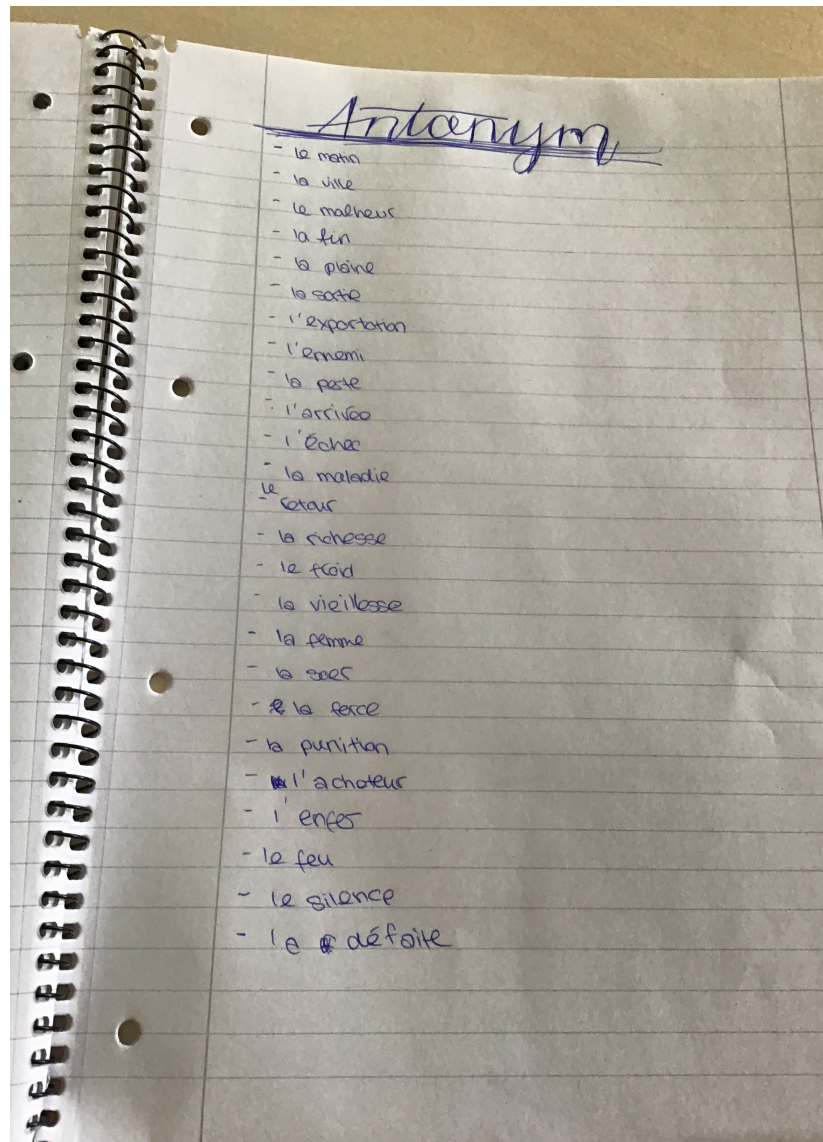 Antonym
- le matin
- la ville
- le malheur
- la fin
- la plaine
- la sortie
- l'exportation
- l'ennemi
- la perte
- l'arrivée
- l'échec
- la maladie
- le retour
- la richesse
- le froid
- la vieillesse
- la femme
- la soer
- la force
- la punition
- l'acheteur
- l'enfer
- le feu
- le silence
- la défaite